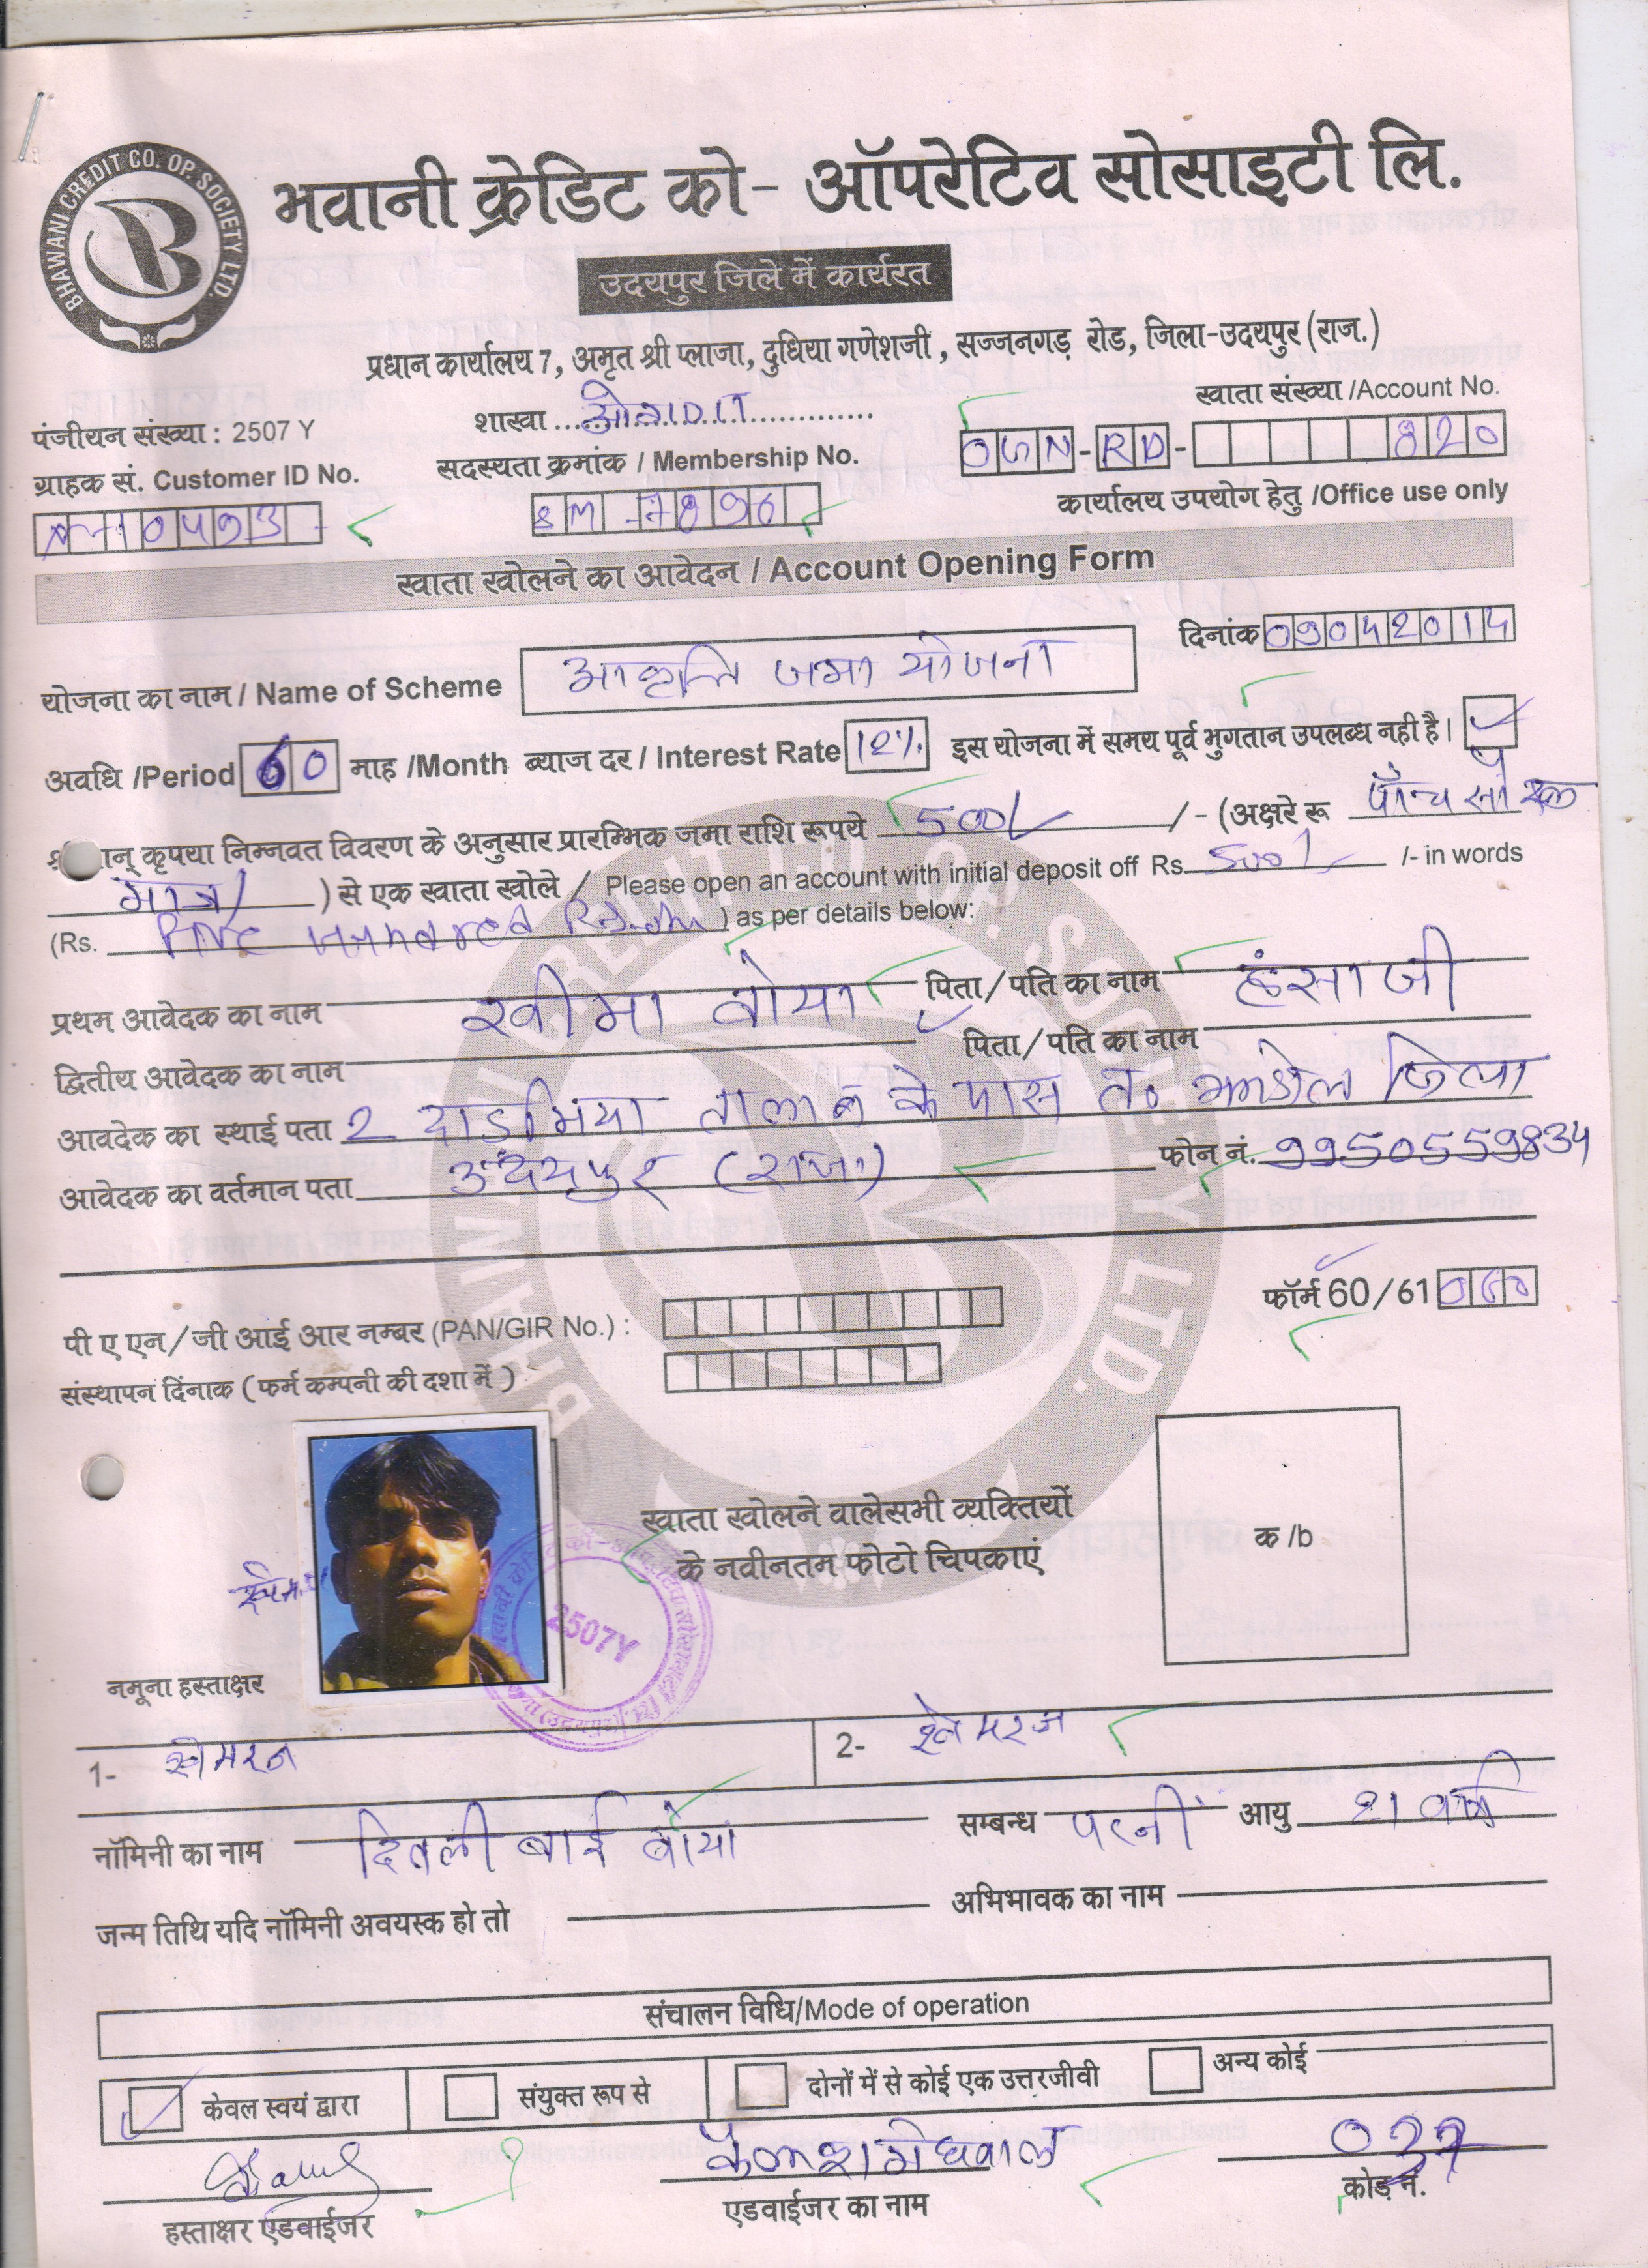 BHAWANI CREDIT CO. OP. SOCIETY LTD.
भवानी क्रेडिट को- ऑपरेटिव सोसाइटी लि.
उदयपुर जिले में कार्यरत
प्रधान कार्यालय 7, अमृत श्री प्लाजा, दुधिया गणेशजी, सज्जनगड़ रोड, जिला-उदयपुर (राज.)
पंजीयन संख्या : 2507 Y
शाखा
खाता संख्या /Account No.
ग्राहक सं. Customer ID No.
सदस्यता क्रमांक / Membership No.
OGN-RD- 820
कार्यालय उपयोग हेतु /Office use only
खाता खोलने का आवेदन / Account Opening Form
दिनांक 09042014
योजना का नाम / Name of Scheme आकृति जमा योजना
अवधि /Period 60 माह /Month ब्याज दर / Interest Rate 12% इस योजना में समय पूर्व भुगतान उपलब्ध नही है।
कृपया निम्नवत विवरण के अनुसार प्रारम्भिक जमा राशि रूपये 500/- /- (अक्षरे रू पाँच सौ
मात्र ) से एक खाता खोले / Please open an account with initial deposit off Rs. 500/- /- in words
(Rs. Five Hundred ) as per details below:
प्रथम आवेदक का नाम खीमा बोया पिता/पति का नाम हंसा जी
द्वितीय आवेदक का नाम पिता/पति का नाम
आवदेक का स्थाई पता 2 दाडमिया तालाब के पास त. जिला
आवेदक का वर्तमान पता उदयपुर (राज) फोन नं. 9950559834
फॉर्म 60/61
पी ए एन/जी आई आर नम्बर (PAN/GIR No.) :
संस्थापन दिंनाक ( फर्म कम्पनी की दशा में )
खाता खोलने वालेसभी व्यक्तियों
के नवीनतम फोटो चिपकाएं
क /b
2507Y
नमूना हस्ताक्षर
1- खेमराज
2- खेमराज
नॉमिनी का नाम बाई बोया सम्बन्ध पत्नी आयु 21 वर्ष
जन्म तिथि यदि नॉमिनी अवयस्क हो तो अभिभावक का नाम
संचालन विधि/Mode of operation
केवल स्वयं द्वारा संयुक्त रूप से दोनों में से कोई एक उत्तरजीवी अन्य कोई
कैलाश मेघवाल
हस्ताक्षर एडवाईजर एडवाईजर का नाम कोड़ नं.